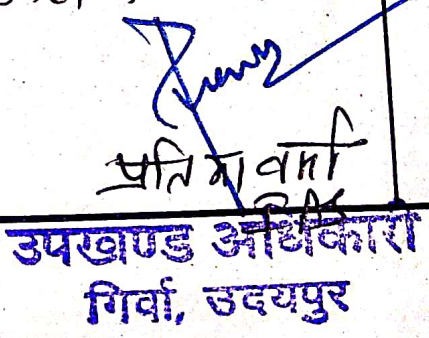 प्रतिमा वर्मा
उपखण्ड अधिकारी
गिर्वा, उदयपुर